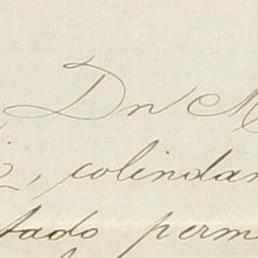 Dn M
, colindan
tado perm